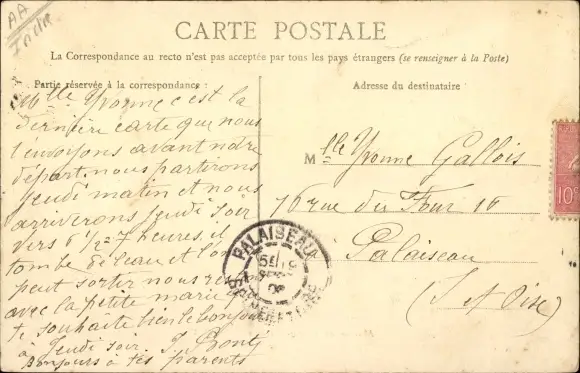 AA
Indre
CARTE POSTALE
La Correspondance au recto n'est pas acceptée par tous les pays étrangers (se renseigner à la Poste)
Partie réservée à la correspondance :
Adresse du destinataire
Mlle Yvonne c'est la
dernière carte que nous
t'envoyons avant notre
départ nous partirons
jeudi matin et nous
arriverons jeudi soir
vers 6 1/2 - 7 heures, il
tombe de l'eau et l'on
peut sortir nous
avec la petite marie
te souhaite bien le bonjour
à jeudi soir.
Bonjours à tes parents
Mlle Yvonne Gallois
16 rue du Four 16
Palaiseau
(S et Oise)
PALAISEAU
10